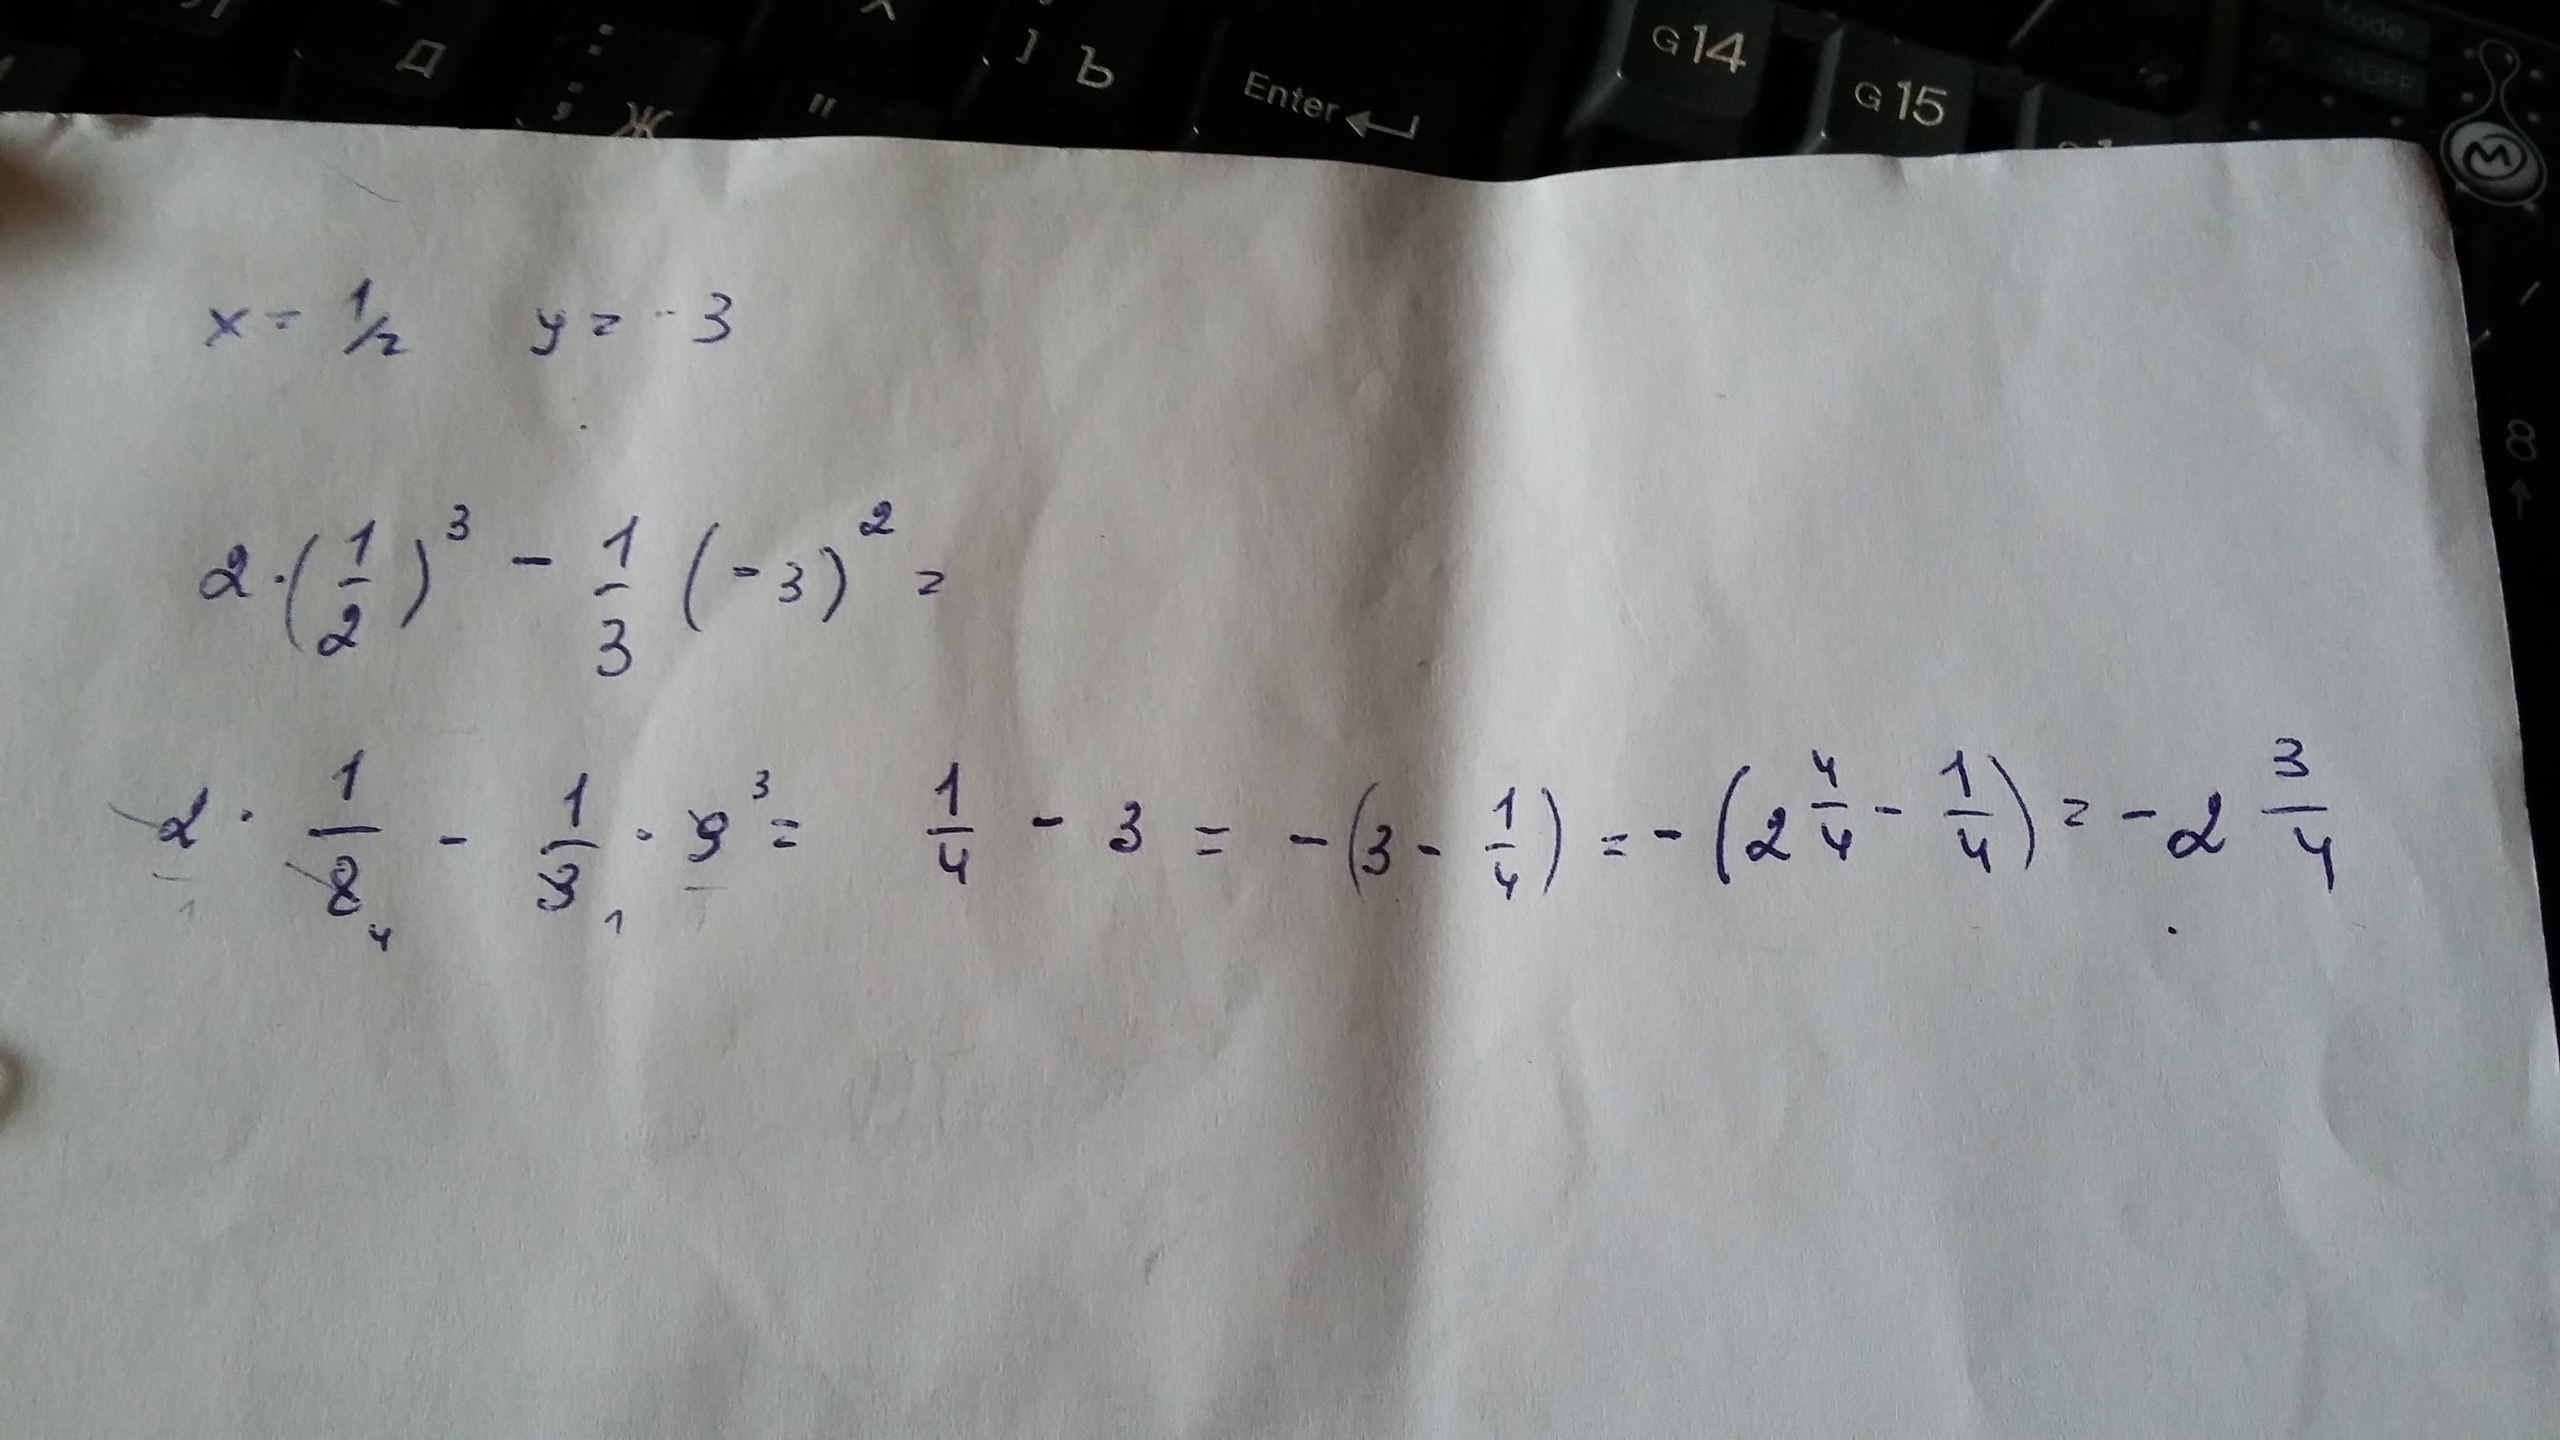 Д Ж " ] Ъ Enter G14 G15 Mode ON/OFF
x = 1/2 y = -3
2·(1/2)³ - 1/3 (-3)² =
2 · 1/8 - 1/3 · 9 = 1/4 - 3 = -(3 - 1/4) = -(2 4/4 - 1/4) = -2 3/4
1 4 1 3 1
8